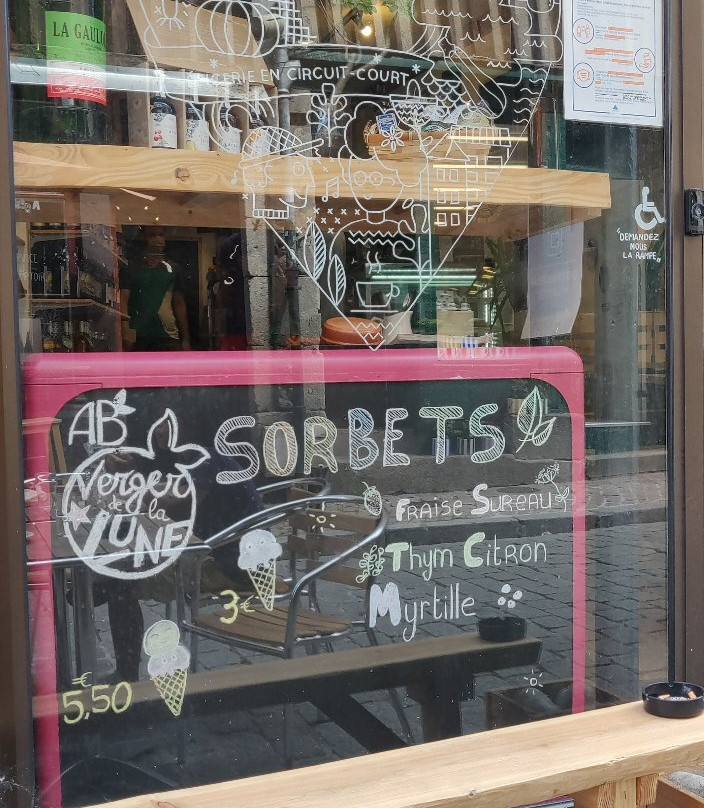 LA GAULI
ERIE EN CIRCUIT-COURT
"DEMANDEZ
NOUS
LA RAMPE"
AB
Verger
de la
LUNE
SORBETS
Fraise Sureau
Thym Citron
Myrtille
3€
€
5,50